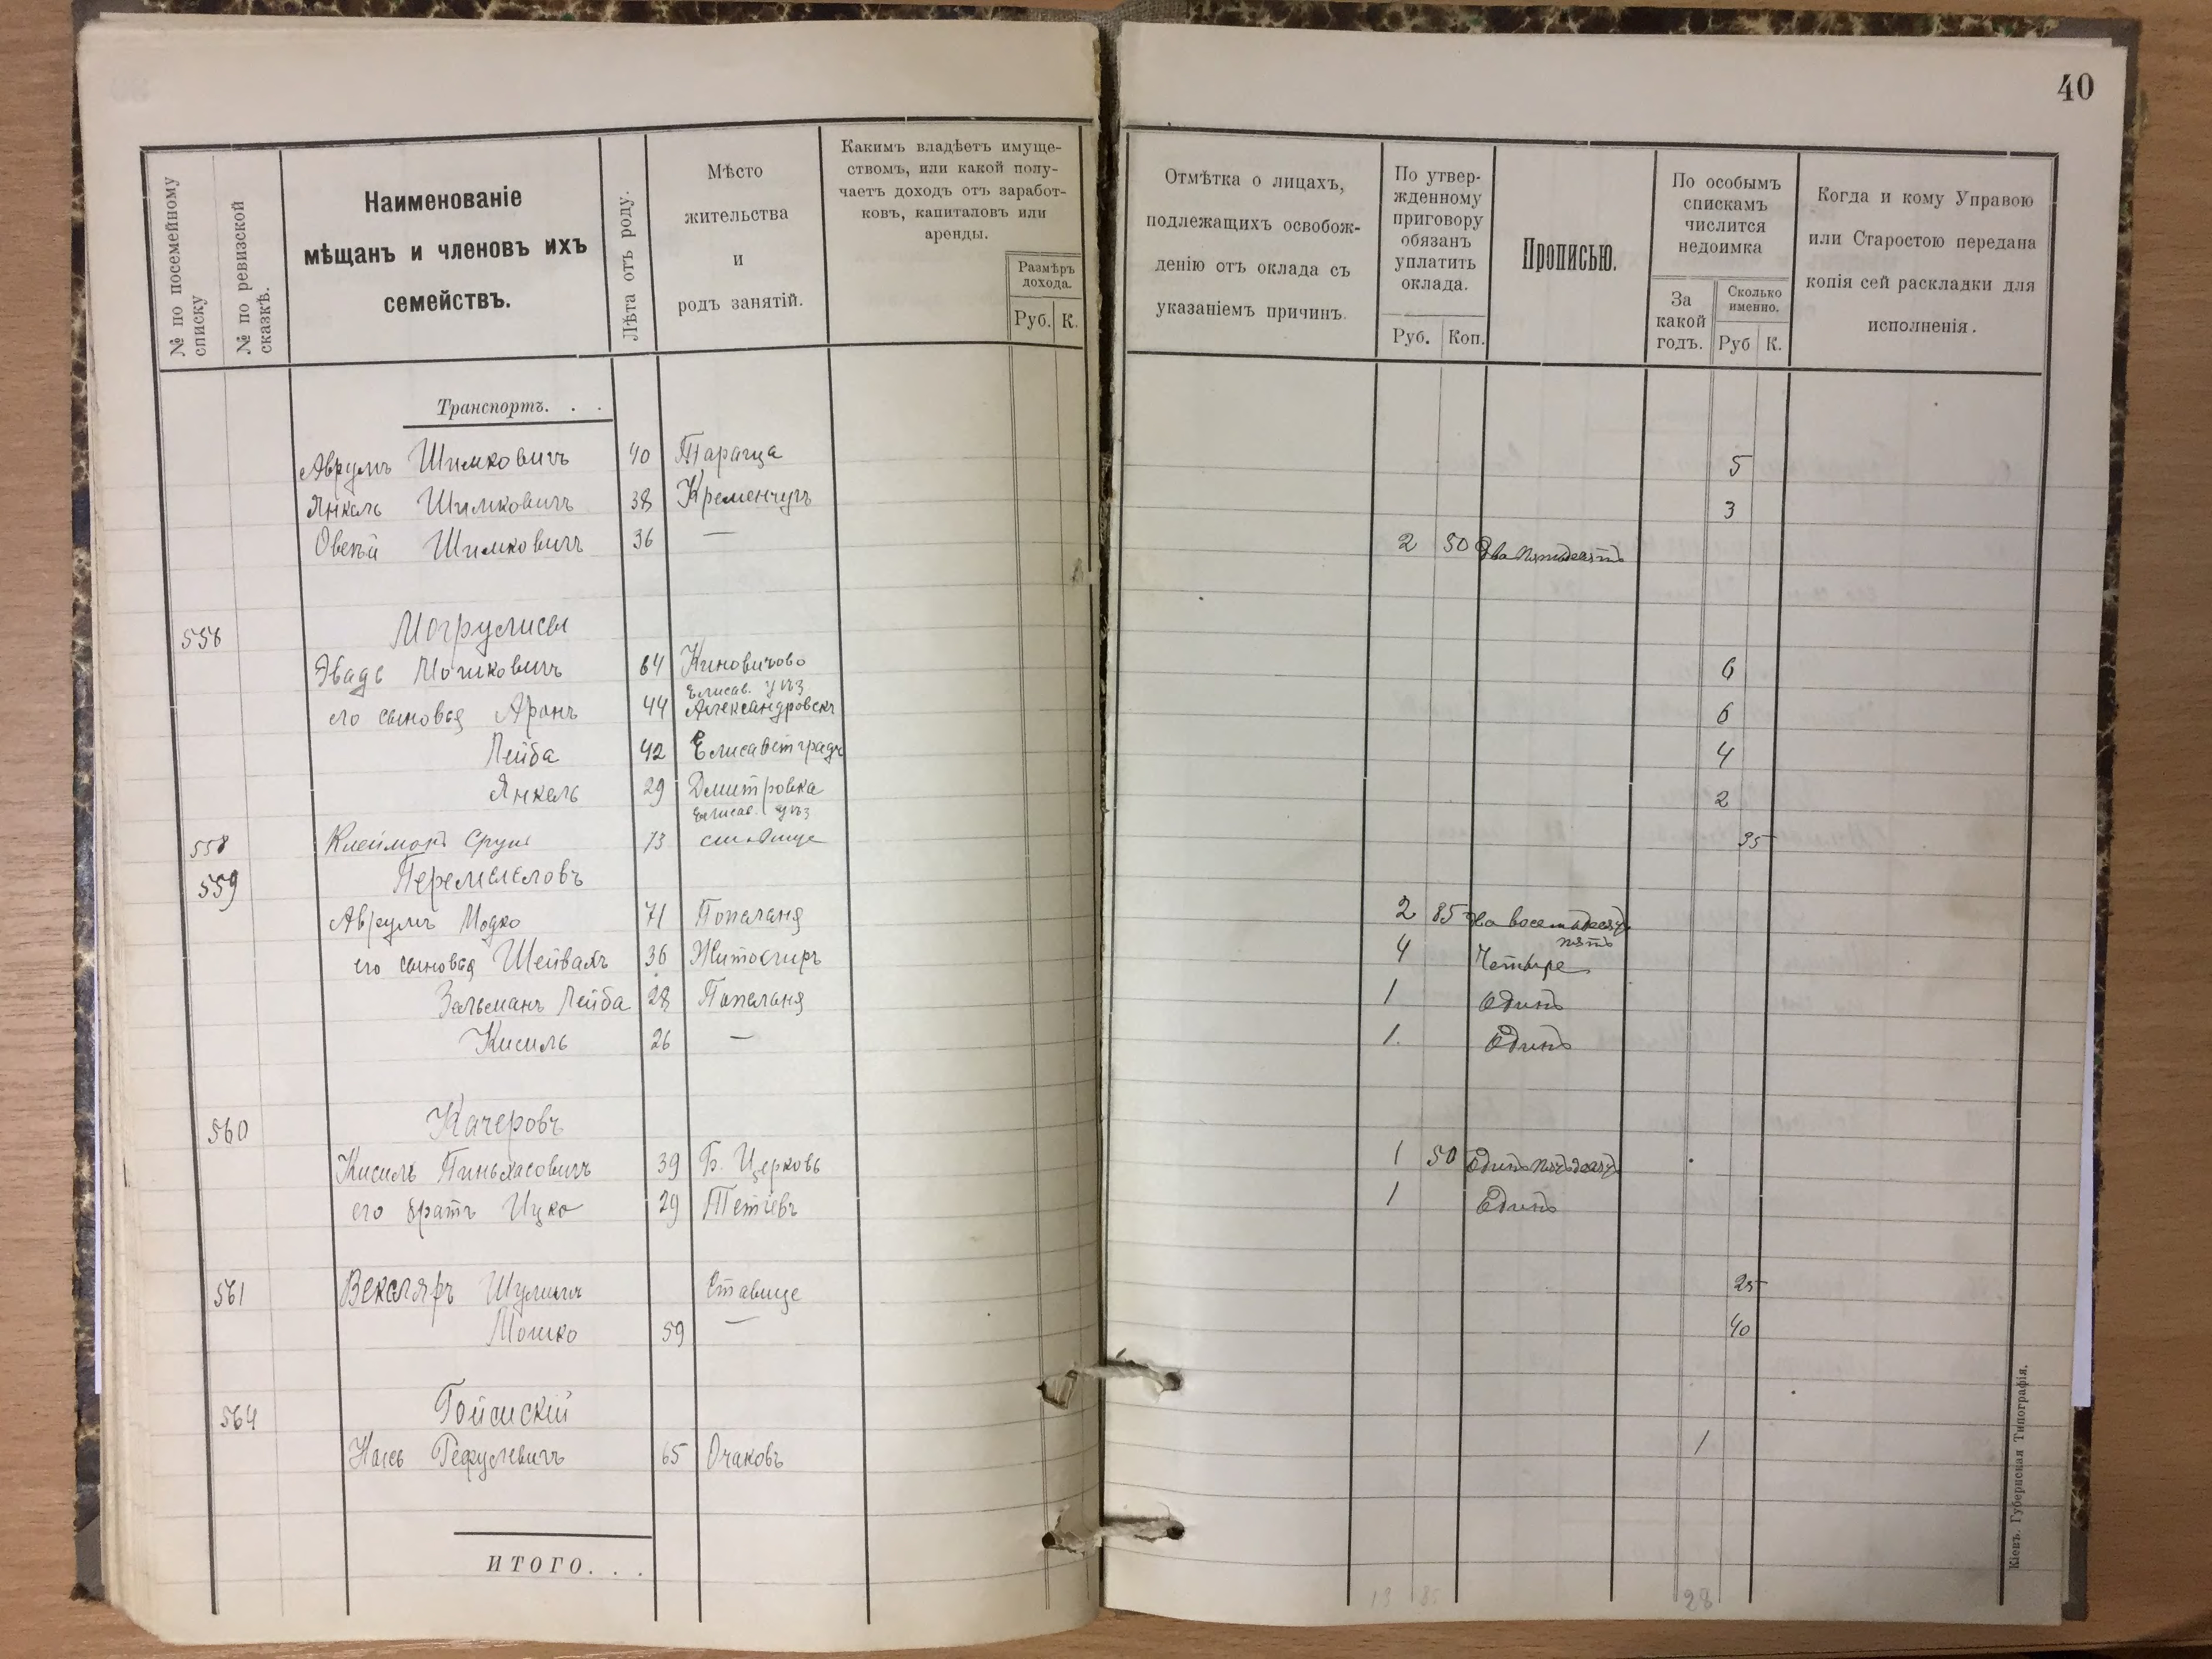 40
№ по посемейному списку
№ по ревизской сказкѣ.
Наименованіе
мѣщанъ и членовъ ихъ
семействъ.
Лѣта отъ роду.
Мѣсто
жительства
и
родъ занятій.
Какимъ владѣетъ имуще-
ствомъ, или какой полу-
чаетъ доходъ отъ заработ-
ковъ, капиталовъ или
аренды.
Размѣръ
дохода.
Руб. К.
Отмѣтка о лицахъ,
подлежащихъ освобож-
денію отъ оклада съ
указаніемъ причинъ.
По утвер-
жденному
приговору
обязанъ
уплатить
оклада.
Руб. Коп.
Прописью.
По особымъ
спискамъ
числится
недоимка
За
какой
годъ.
Сколько
именно.
Руб К.
Когда и кому Управою
или Старостою передана
копія сей раскладки для
исполненія.
Транспортъ. . .
Аврумъ Шимковичъ 40 Тараща 5
Янкель Шимковичъ 38 Кременчугъ 3
Овсей Шимковичъ 36 — 2 50 Два пятьдесятъ
556
Мошковичъ 64 6
Елисав. уѣз
его сыновья Аронъ 44 Александровск 6
Лейба 42 Елисаветградъ 4
Янкель 29 Дмитровка 2
Елисав. уѣз
558 Клейманъ Сруль 73 ставище 35
559
Аврумъ Мошко 71 2 85 два восемьдесят
пять
его сыновья 36 Житомиръ 4 Четыре
Зельманъ Лейба 28 1 Одинъ
Кисиль 26 — 1. Одинъ
560 Качеровъ
Кисиль Пиньхасовичъ 39 Б. Церковь 1 50 Одинъ пятьдесят
его братъ Ицко 29 Тетіевъ 1 Одинъ
561 Вексляръ Шулимъ Ставище 25
Мошко 59 — 40
564 Гойсискій
65 Очаковъ 1
ИТОГО. . .
13 85 28
Кіевъ. Губернская Типографія.